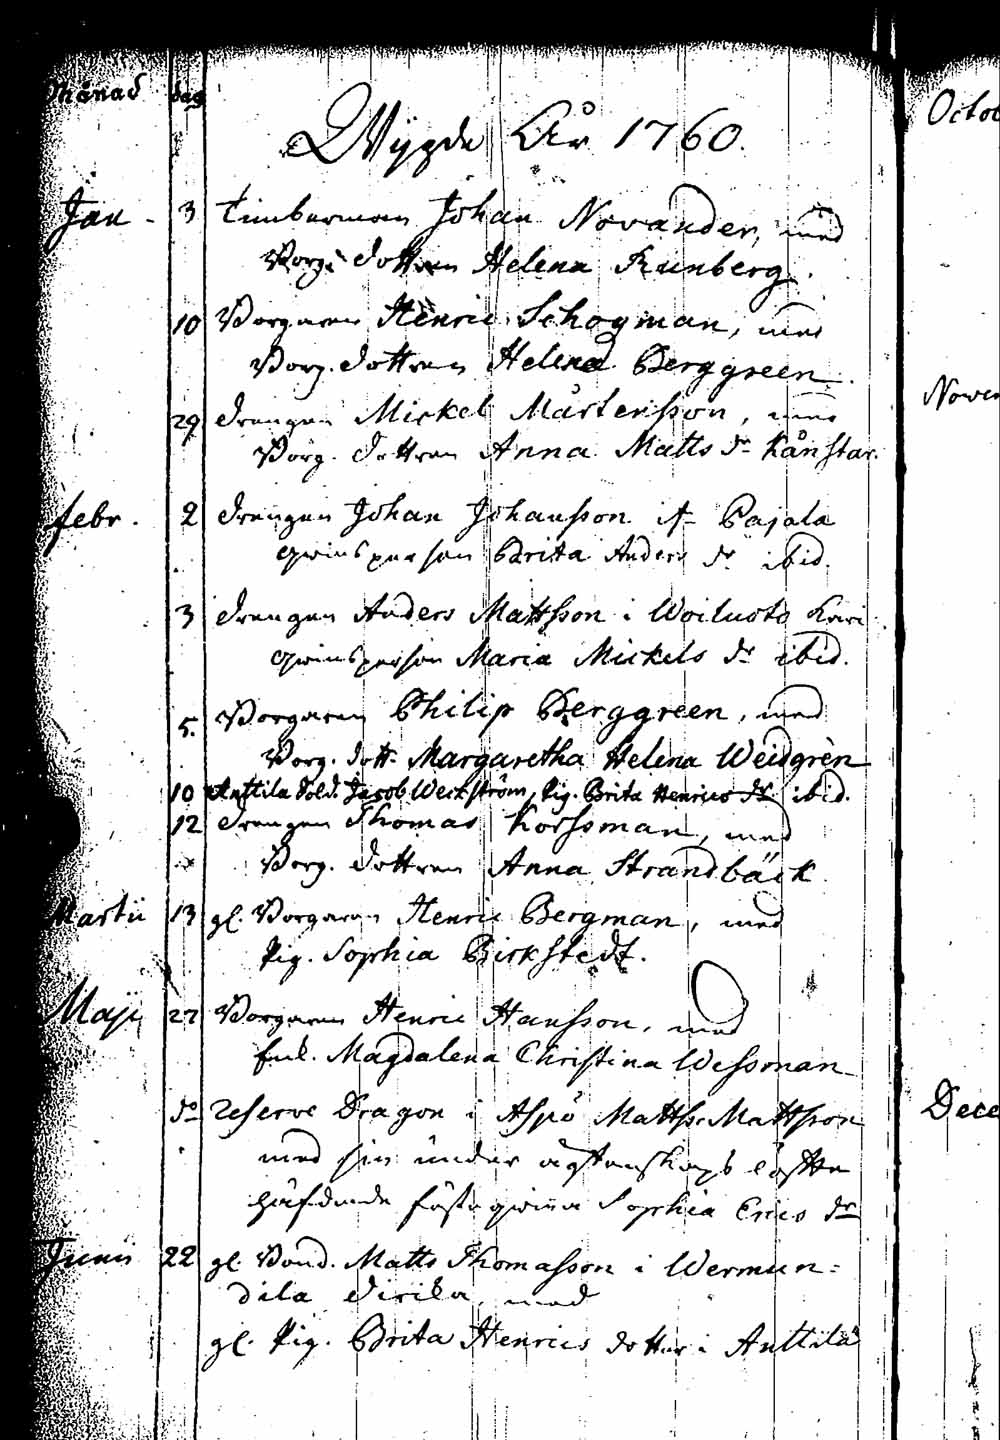 Månad dag
Wygde År 1760.
Jan - 3 timberman Johan Novander, med
Borg. dottren Helena Runberg.
10 Borgaren Henric Schogman, med
Borg. dottren Helena Berggreen.
29 drengen Mickel Mårtensson, med
Borg. dottren Anna Matts dr Kånstar.
febr. 2 drengen Johan Johansson ifr Pajala
qwinsperson Brita Anders dr ibid.
3 drengen Anders Mattsson i Woiluoto
qwinsperson Maria Mickels dr ibid.
5. Borgaren Philip Berggreen, med
Borg. dott. Margaretha Helena Weidgrèn
10 Anttila Sold. Jacob Weckström, Pig. Brita Henrics dr ibid.
12 drengen Thomas Korssman, med
Borg. dottren Anna Strandbäck
Martii 13 gl. Borgaren Henric Bergman, med
Pig. Sophia Birkstedt.
Maji 27 Borgaren Henric Hansson, med
Enk. Magdalena Christina Wessman
do reserve Dragon i Aspö Matts Mattsson
med sin under ägtenskaps löfte
häfdade fästeqwinna Sophia Erics dr
Junii 22 gl. Bond. Matts Thomasson i Wermun=
dila med
gl. Pig. Brita Henrics dotter i Anttila
Octob
Novem
Dece